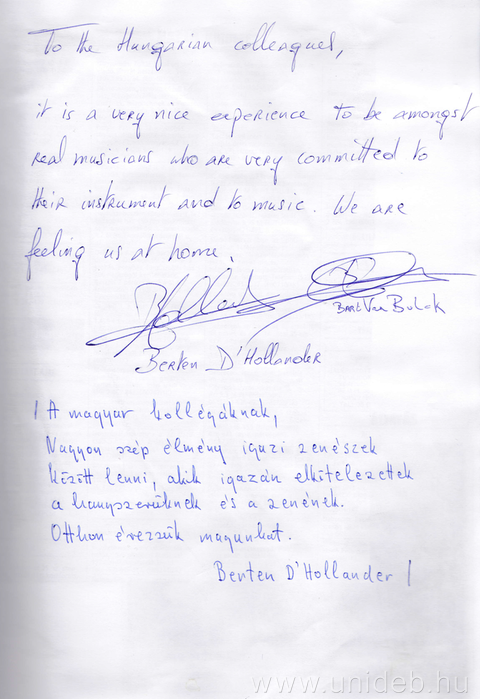 To the Hungarian colleagues,
it is a very nice experience to be amongst
real musicians who are very committed to
their instrument and to music. We are
feeling us at home.
Bart Van Bulck
Berten D'Hollander
/ A magyar kollégáknak,
Nagyon szép élmény igazi zenészek
között lenni, akik igazán elkötelezettek
a hangszerüknek és a zenének.
Otthon érezzük magunkat.
Berten D'Hollander /
www.unideb.hu